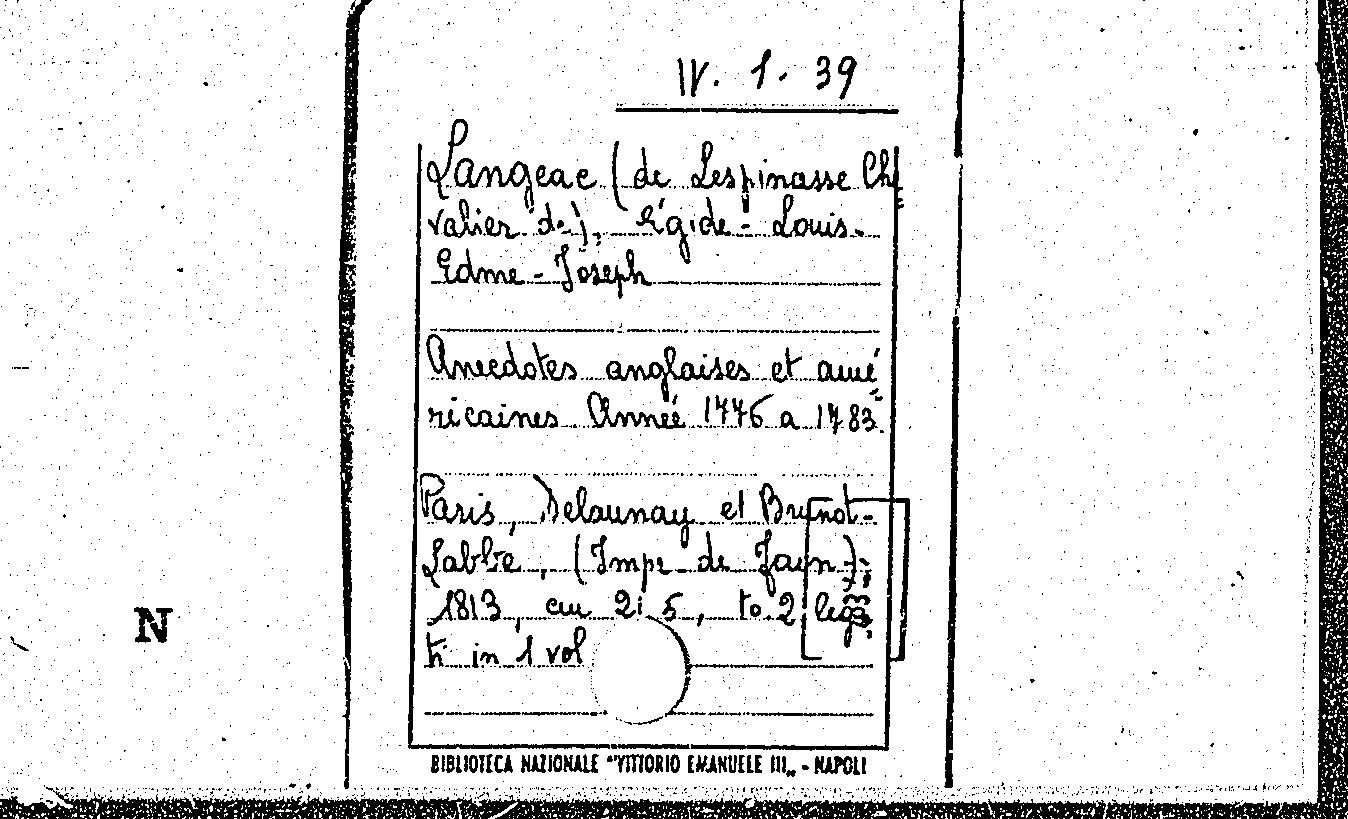 IV. 1. 39
Langeac (de Lespinasse Che
valier de), Egide-Louis-
Edme-Joseph
Anecdotes anglaises et amé
ricaines. Année 1776 a 1783.
Paris, Delaunay et Brunot-
Labbe, (Impr. de Jayn);
1813, cm 21,5, to. 2 lega
ti in 1 vol
N
BIBLIOTECA NAZIONALE "VITTORIO EMANUELE III„ - NAPOLI